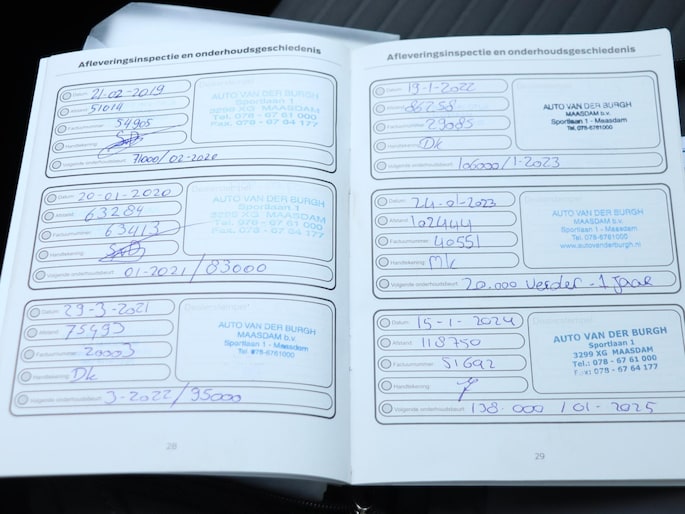 Afleveringsinspectie en onderhoudsgeschiedenis
Datum: 21-02-2019
Afstand: 51014
Factuurnummer: 54905
Handtekening:
Volgende onderhoudsbeurt: 71000/02-2020
Dealerstempel:
AUTO VAN DER BURGH
Sportlaan 1
3299 XG MAASDAM
Tel. 078 - 67 61 000
Fax. 078 - 67 64 177
Datum: 20-01-2020
Afstand: 63284
Factuurnummer: 63413
Handtekening:
Volgende onderhoudsbeurt: 01-2021/83000
Dealerstempel:
AUTO VAN DER BURGH
Sportlaan 1
3299 XG MAASDAM
Tel. 078 - 67 61 000
Fax. 078 - 67 64 177
Datum: 29-3-2021
Afstand: 75493
Factuurnummer: 20003
Handtekening: Dk
Volgende onderhoudsbeurt: 3-2022/95000
Dealerstempel:
AUTO VAN DER BURGH
MAASDAM b.v.
Sportlaan 1 - Maasdam
Tel. 078-6761000
28
Afleveringsinspectie en onderhoudsgeschiedenis
Datum: 19-1-2022
Afstand: 86258
Factuurnummer: 29085
Handtekening: Dk
Volgende onderhoudsbeurt: 106000/1-2023
AUTO VAN DER BURGH
MAASDAM b.v.
Sportlaan 1 - Maasdam
Tel. 078-6761000
Datum: 24-01-2023
Afstand: 102444
Factuurnummer: 40551
Handtekening: Mk
Volgende onderhoudsbeurt: 20.000 verder - 1 jaar
AUTO VAN DER BURGH
MAASDAM b.v.
Sportlaan 1 - Maasdam
Tel. 078-6761000
www.autovanderburgh.nl
Datum: 15-1-2024
Afstand: 118750
Factuurnummer: 51692
Handtekening:
Volgende onderhoudsbeurt: 138.000 / 01-2025
AUTO VAN DER BURGH
Sportlaan 1
3299 XG MAASDAM
Tel.: 078 - 67 61 000
Fax: 078 - 67 64 177
29